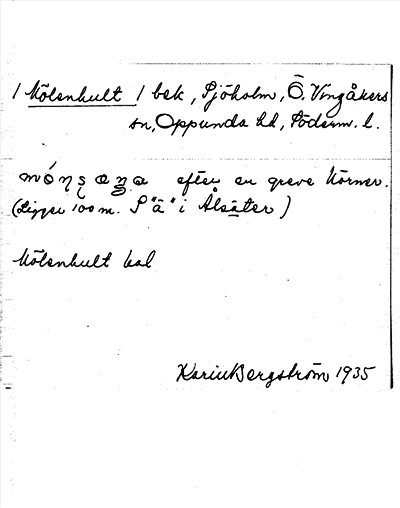 / Mölenhult / bek, Sjöholm, Ö. Vingåkers
sn, Oppunda hd, Söderm. l.
efter en greve Mörner.
(Ligger 100 m. S "ä" i Ålsäter)
Mölenhult kal
Karin Bergström 1935